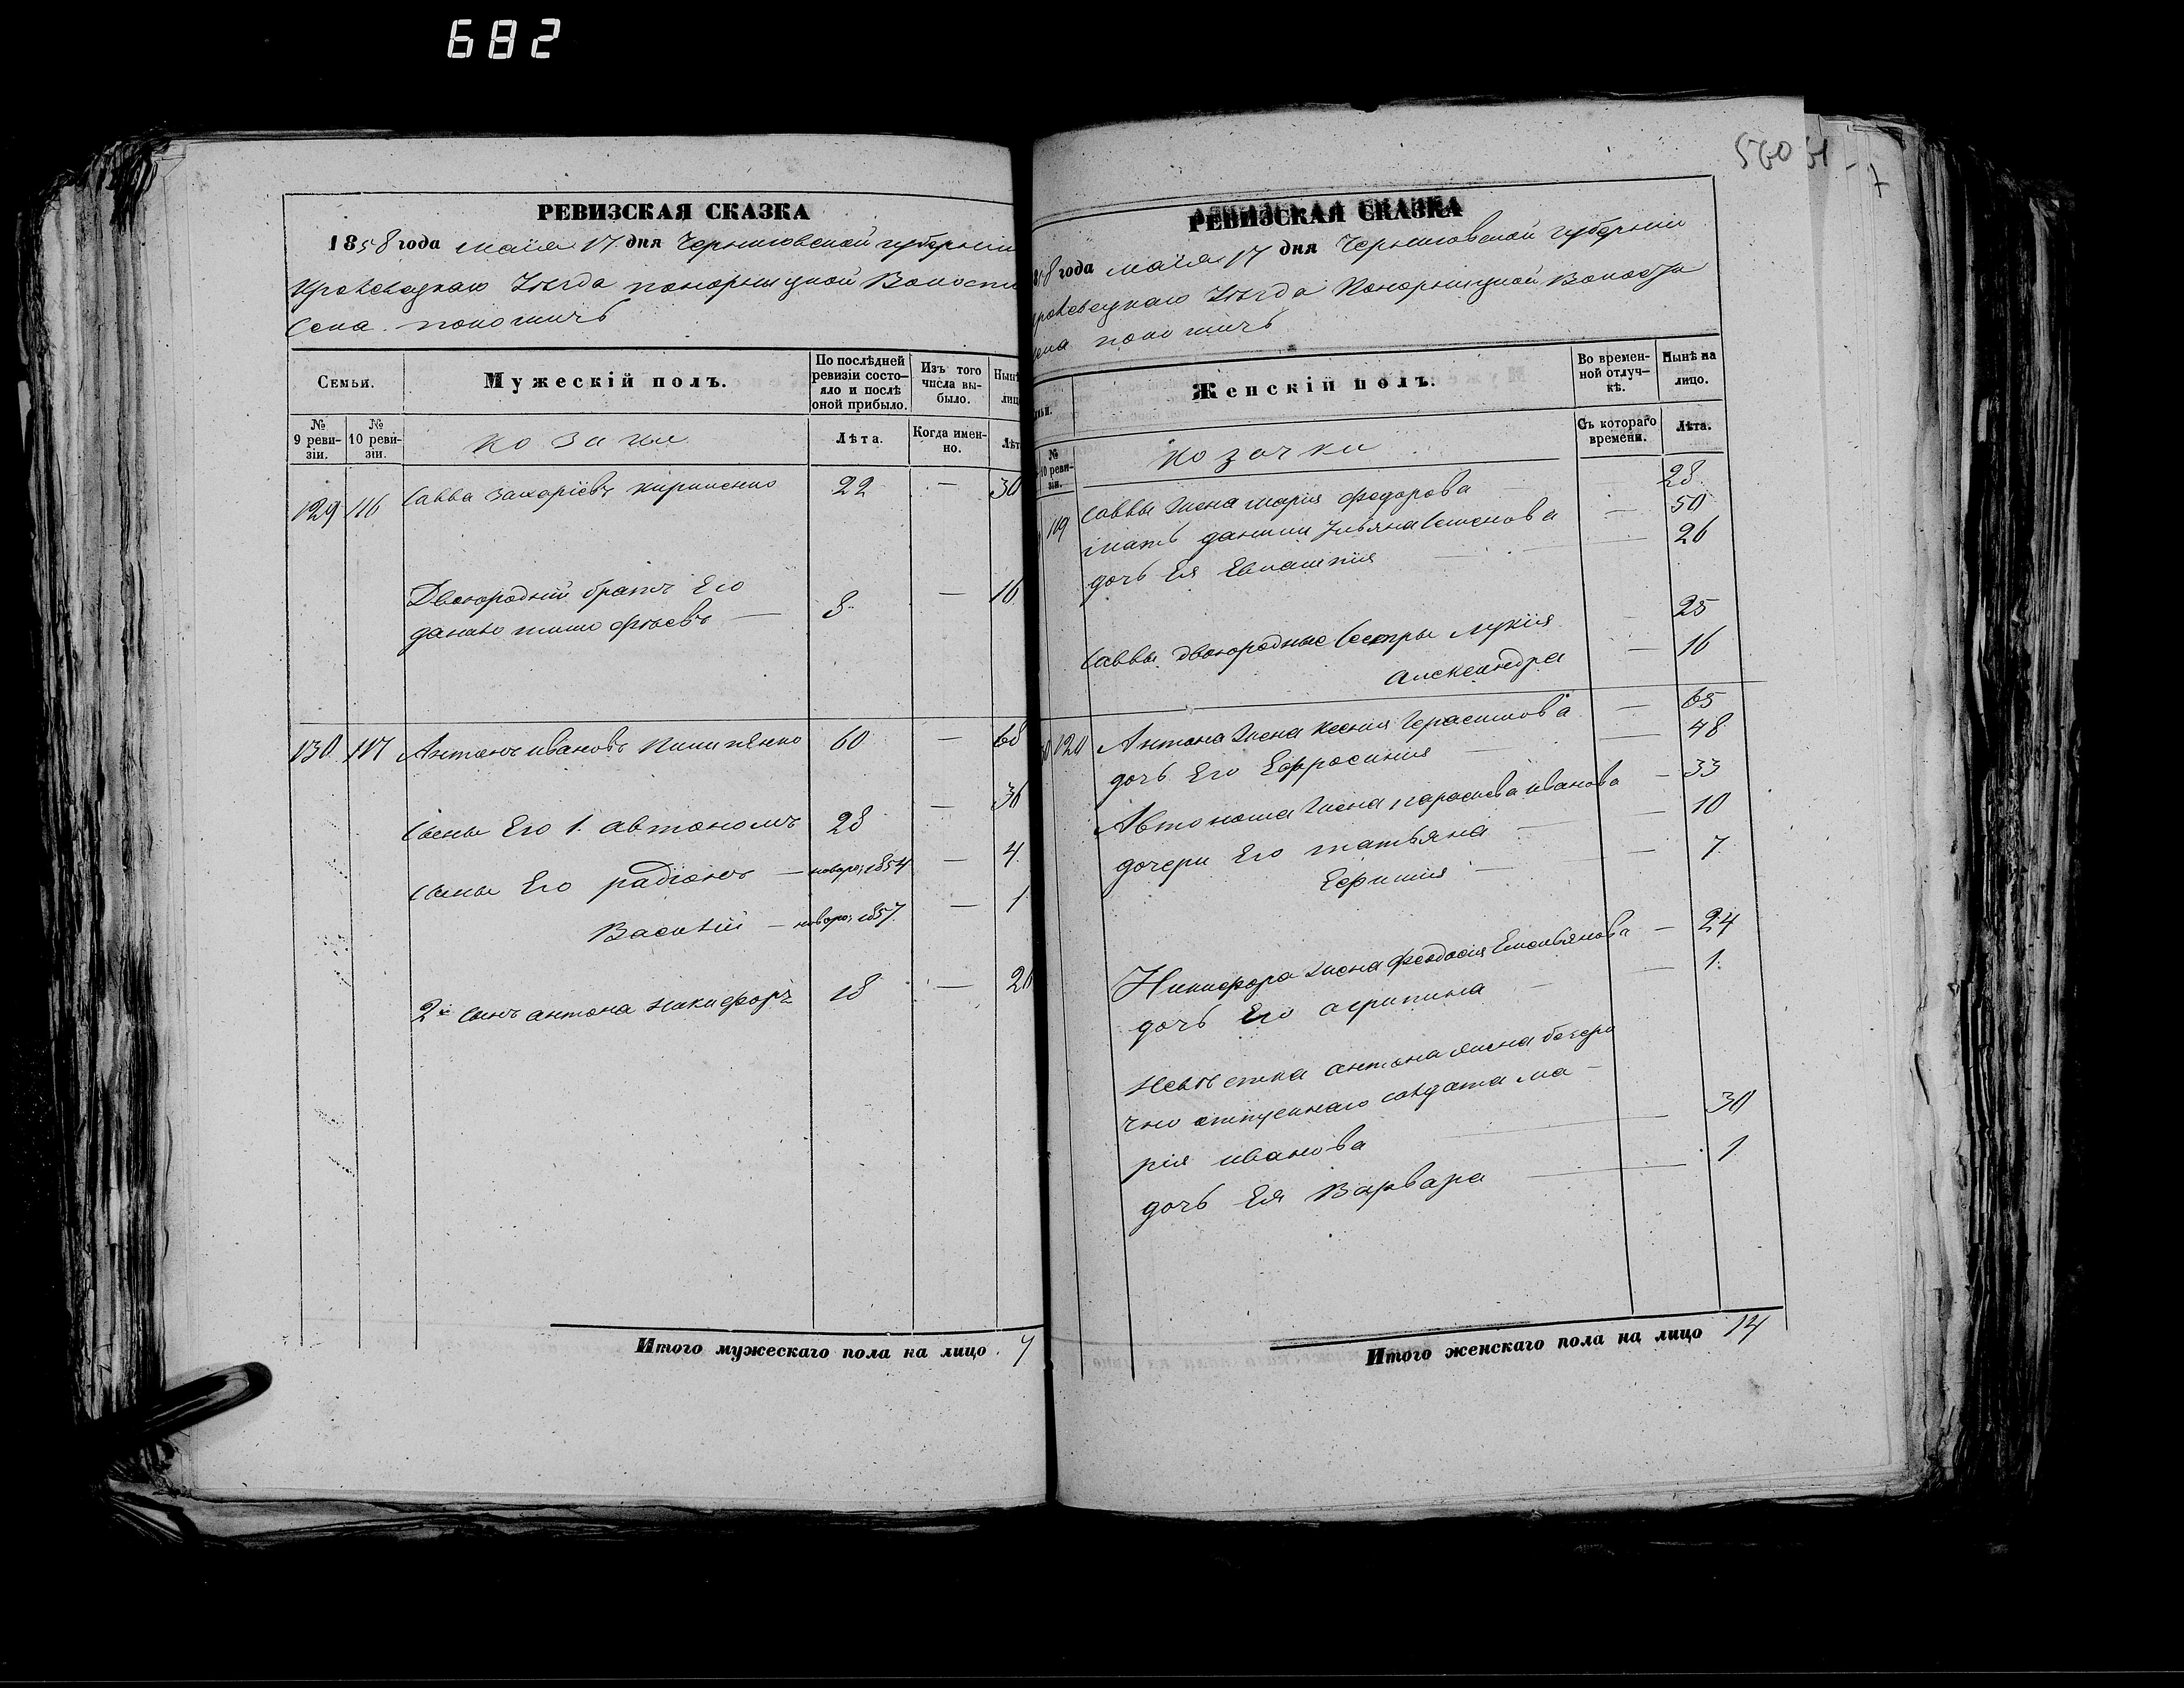 682
РЕВИЗСКАЯ СКАЗКА
1858 года маія 17 дня Черниговской губерніи
Кролевецкаго Уѣзда понорницкой Волости
Села
Семьи.
Мужескій полъ.
По послѣдней ревизіи состояло и послѣ оной прибыло.
Изъ того числа выбыло.
Нынѣ лиц
№ 9 ревизіи.
№ 10 ревизіи.
козаки
Лѣта.
Когда именно.
Лѣт
129 116 Савва захаріевъ кириленко 22 — 30
Двоюродній братъ Его
данило тимофѣевъ — 8 — 16
130 117 Антонъ ивановъ пилипенко 60 — 68
Сыны Его 1. автономъ 28 — 36
Сыны Его радіонъ — новоро: 1854 — 4
Василій — новоро: 1857 — 1
2й сынъ антона никифоръ 18 — 26
Итого мужескаго пола на лицо. 7
560
РЕВИЗСКАЯ СКАЗКА
58 года маія 17 дня Черниговской губерніи
кролевецкаго Уѣзда Понорницкой Волости
ела
мьи.
Женскій полъ.
Во временной отлучкѣ.
Нынѣ на лицо.
№ 10 ревизіи.
козачки
Съ котораго времени.
Лѣта.
119 Саввы жена марія федорова — 28
мать данилы Ульяна Семенова — 50
дочь Ея Евлампія — 26
Саввы двоюродные сестры Лукія — 25
Александра — 16
120 Антона жена ксенія Герасимова — 65
дочь Его Ефросинія — 48
Автонома жена параскева иванова — 33
дочери Его татьяна — 10
Ефимія — 7
Никифора жена феодосія Емельянова — 24
дочь Его агрипина — 1
невѣстка антона жена безсро
чно отпускнаго солдата ма-
рія иванова — 30
дочь Ея Варвара — 1
Итого женскаго пола на лицо 14